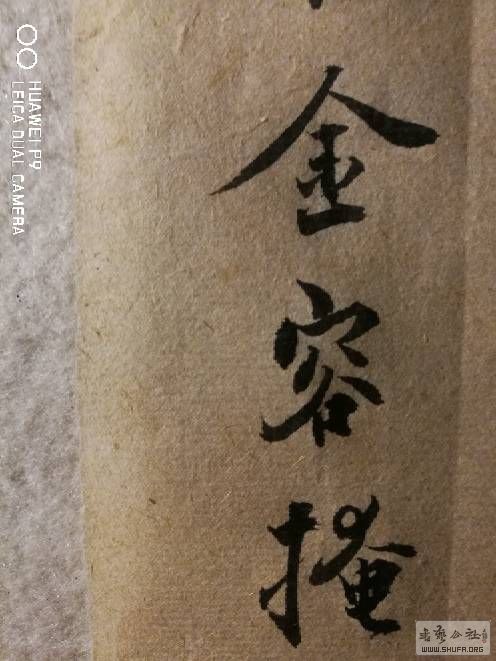 金容掩
HUAWEI P9
LEICA DUAL CAMERA
書藝公社
WWW.SHUFA.ORG